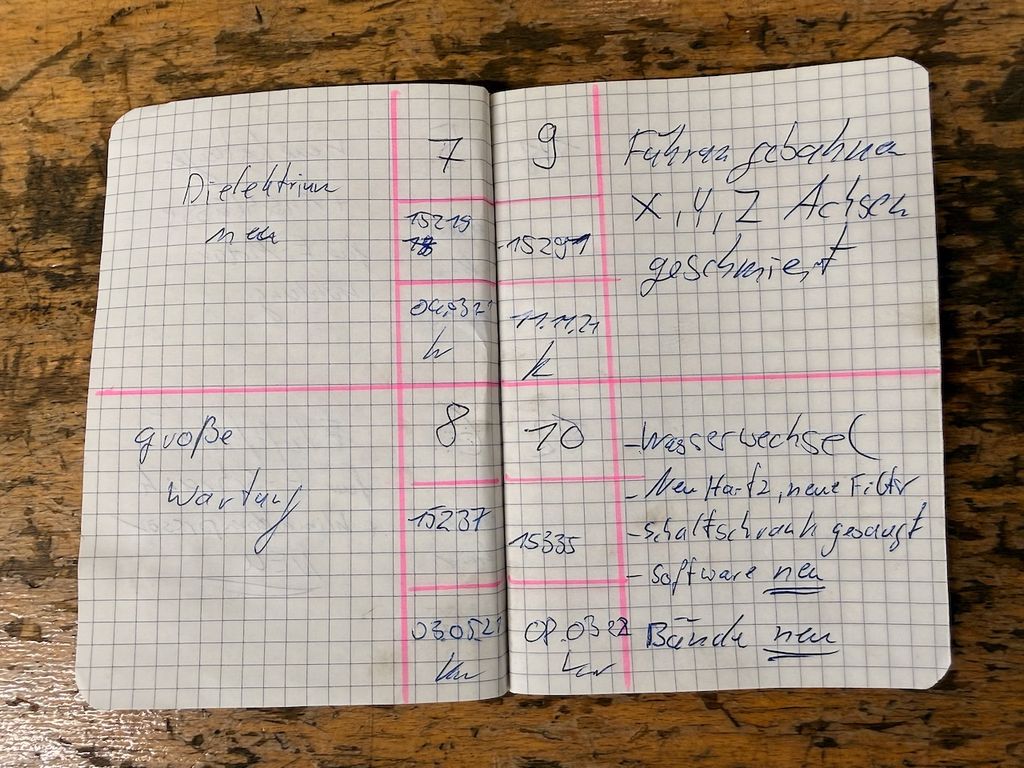 Dielektrium
neu
7
15219
04.03.21
große
Wartung
8
15237
03.05.21
9
15291
11.11.21
k
Führungsbahnen
X, Y, Z Achsen
geschmiert
10
15335
08.03.22
- Wasserwechsel
- Neu Hartz, neue Filtr
- Schaltschrank gesaugt
- Software neu
Bände neu